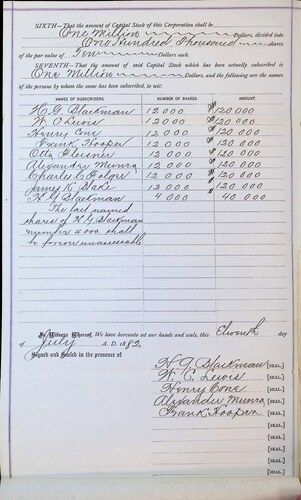 SIXTH—That the amount of Capital Stock of this Corporation shall be
One Million Dollars, divided into
One Hundred Thousand shares
of the par value of Ten Dollars each.
SEVENTH—That the amount of said Capital Stock which has been actually subscribed is
One Million Dollars, and the following are the names
of the persons by whom the same has been subscribed, to wit:
NAMES OF SUBSCRIBERS. NUMBER OF SHARES. AMOUNT.
H G Blackman 12000 120000
W C Lewis 12000 120000
Henry Cone 12000 120000
Frank Hooper 12000 120000
Otto 12000 120000
Alexander Munro 12000 120000
Charles C Folger 12000 120000
James K 12000 120000
H G Blackman 4000 40000
The last named
shares of H. G. Blackman
number 4000 shall
be forever unassessable
In Witness Whereof, We have hereunto set our hands and seals, this Eleventh day
of July A.D. 1882
Signed and Sealed in the presence of
H G Blackman [SEAL.]
W. C. Lewis [SEAL.]
Henry Cone [SEAL.]
Alexander Munro [SEAL.]
Frank Hooper [SEAL.]
[SEAL.]
[SEAL.]
[SEAL.]
[SEAL.]
[SEAL.]